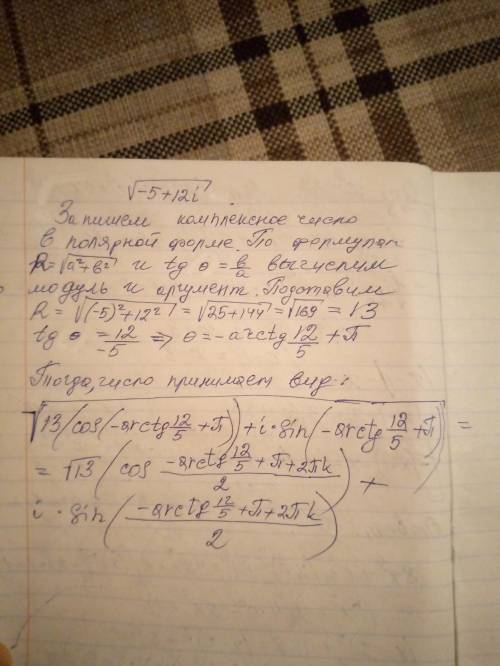 √-5+12i
Запишем комплексное число
в полярной форме. По формулам
R=√a²+b² и tg θ = b/a вычислим
модуль и аргумент. Подставим
R = √(-5)²+12² = √25+144 = √169 = 13
tg θ = 12/-5 => θ = -arctg 12/5 + π
Тогда, число принимает вид:
√13(cos(-arctg 12/5 + π) + i·sin(-arctg 12/5 + π) =
= √13 (cos (-arctg 12/5 + π + 2πk)/2) +
i·sin((-arctg 12/5 + π + 2πk)/2)